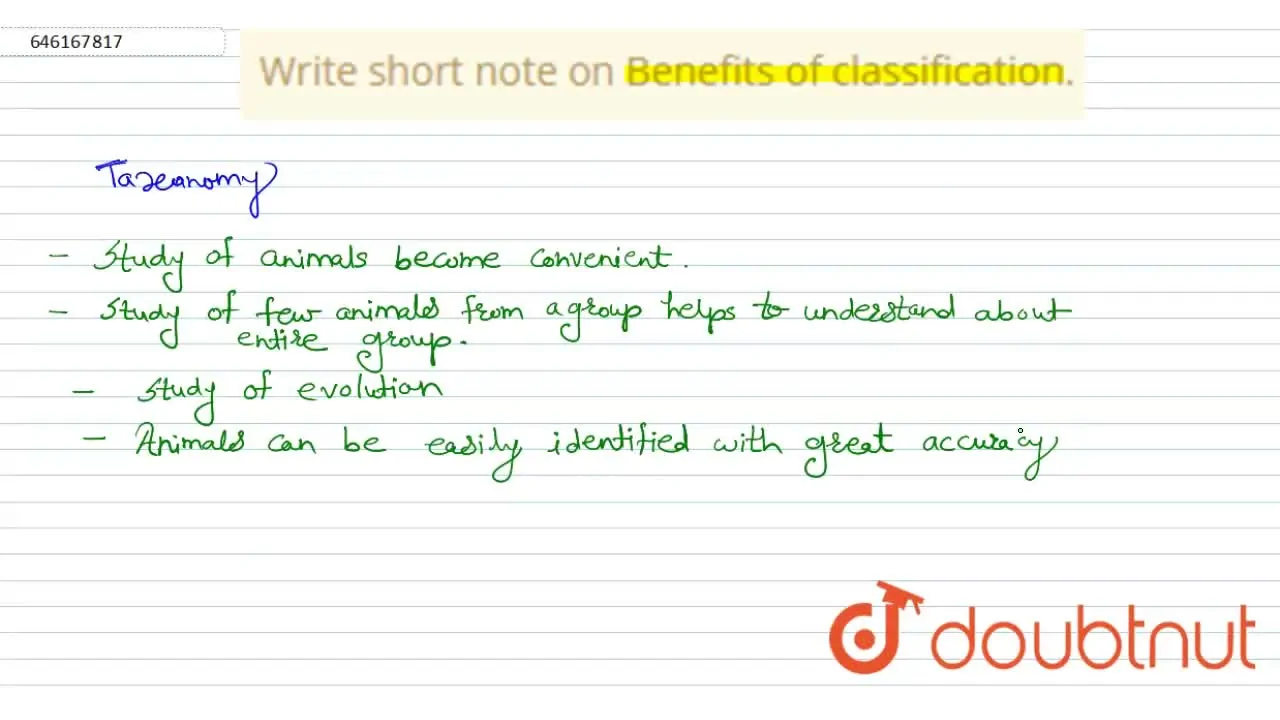 646167817
Write short note on Benefits of classification.
Taxonomy
- Study of animals become convenient.
- Study of few animals from a group helps to understand about
entire group.
- Study of evolution
- Animals can be easily identified with great accuracy
doubtnut